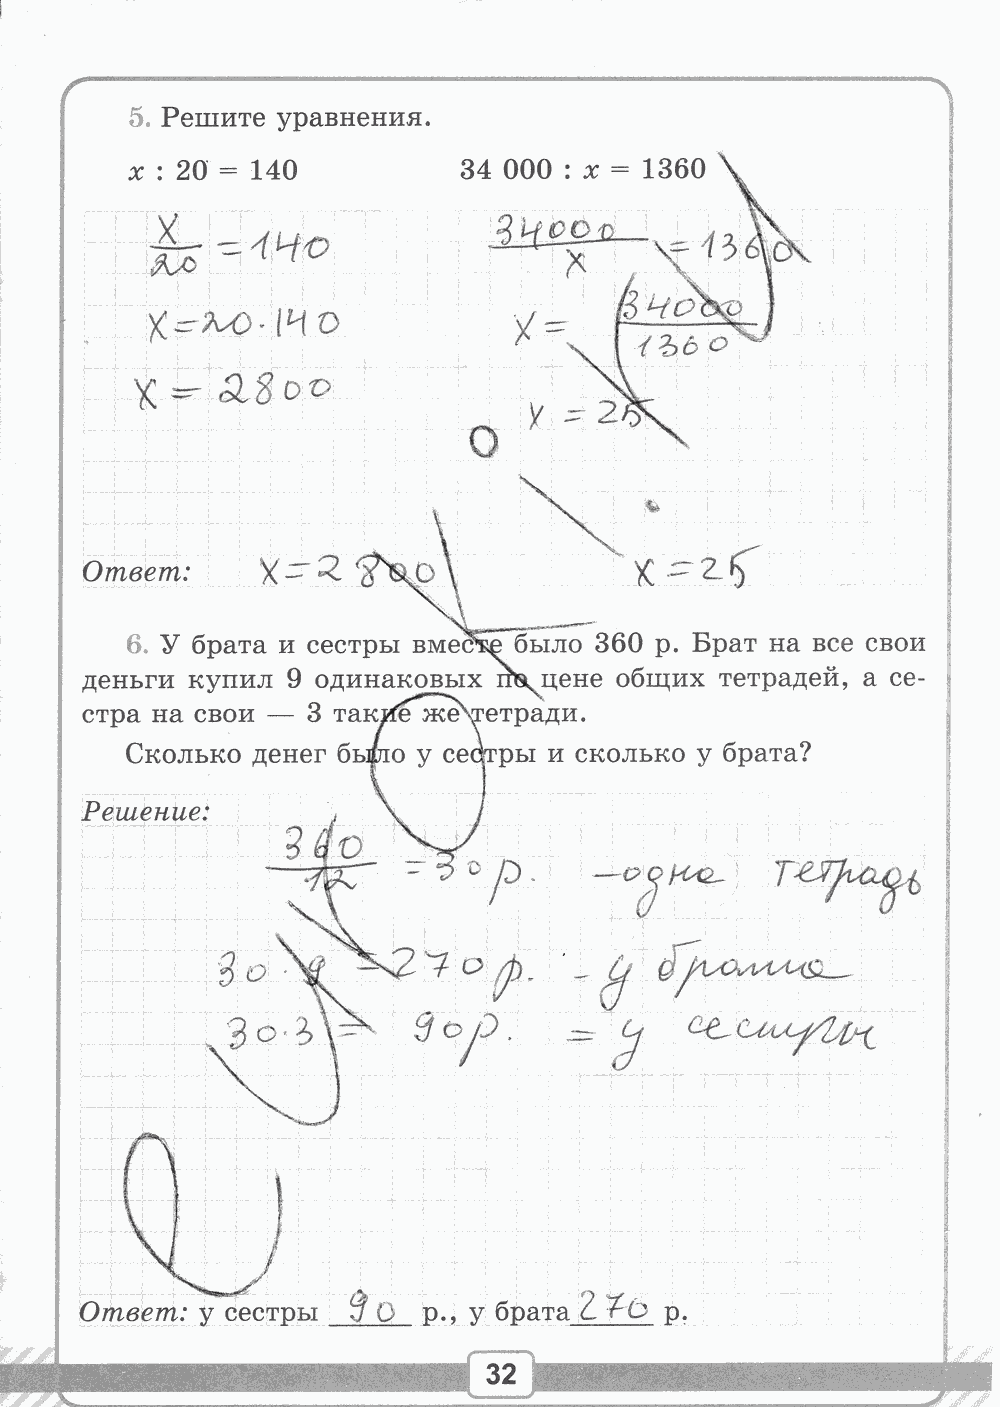 5. Решите уравнения.
x : 20 = 140    34 000 : x = 1360
x/20 = 140    34000/x = 1360
x = 20 · 140    x = 34000/1360
x = 2800    x = 25
Ответ: x = 2800    x = 25
6. У брата и сестры вместе было 360 р. Брат на все свои
деньги купил 9 одинаковых по цене общих тетрадей, а се-
стра на свои — 3 такие же тетради.
Сколько денег было у сестры и сколько у брата?
Решение:
360/12 = 30 р. – одна тетрадь
30 · 9 = 270 р. - у брата
30 · 3 = 90 р. = у сестры
Ответ: у сестры 90 р., у брата 270 р.
32